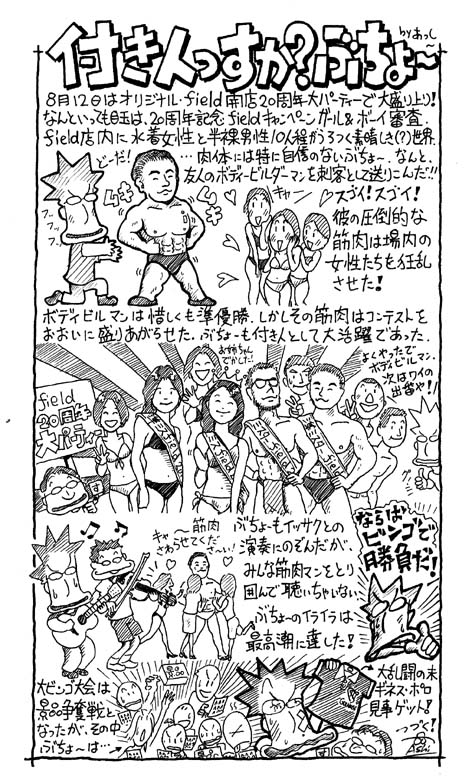 付き人っすか？ぶちょ〜
byあっし
8月12日はオリジナル・field開店20周年大パーティーで大盛り上り！
なんといっても目玉は、20周年記念fieldキャンペンガール＆ボーイ審査。
field店内に水着女性と半裸男性10人程がうろつく素晴しき(?)世界。
…肉体には特に自信のないぶちょ〜、なんと、
友人のボディービルダーマンを刺客として送りこんだ!!
どーだ！
ムキ
ムキ
フッ
フッ
フッ
キャー
スゴイ！スゴイ！
彼の圧倒的な
筋肉は場内の
女性たちを狂乱
させた！
ボディビルマンは惜しくも準優勝。しかしその筋肉はコンテストを
おおいに盛りあがらせた。ぶちょーも付き人として大活躍であった。
お姉ちゃん
でかした！
よくやったで
ボディビルマン。
次はワイの
出番や！
field
20周年
大パーティ
ミスターfield
ならば
ビンゴで
勝負だ！
キャ〜筋肉
さわらせてくだ
さ〜い！
ぶちょーもイッサクとの
演奏にのぞんだが、
みんな筋肉マンをとり
囲んで聴いちゃいない
ぶちょ〜のイライラは
最高潮に達した！
大ビンゴ大会は
景品争奪戦と
なったが、その中
ぶちょ〜は…
景品
大乱闘の末
ギネス・ポロ
見事ゲット！
つづく！